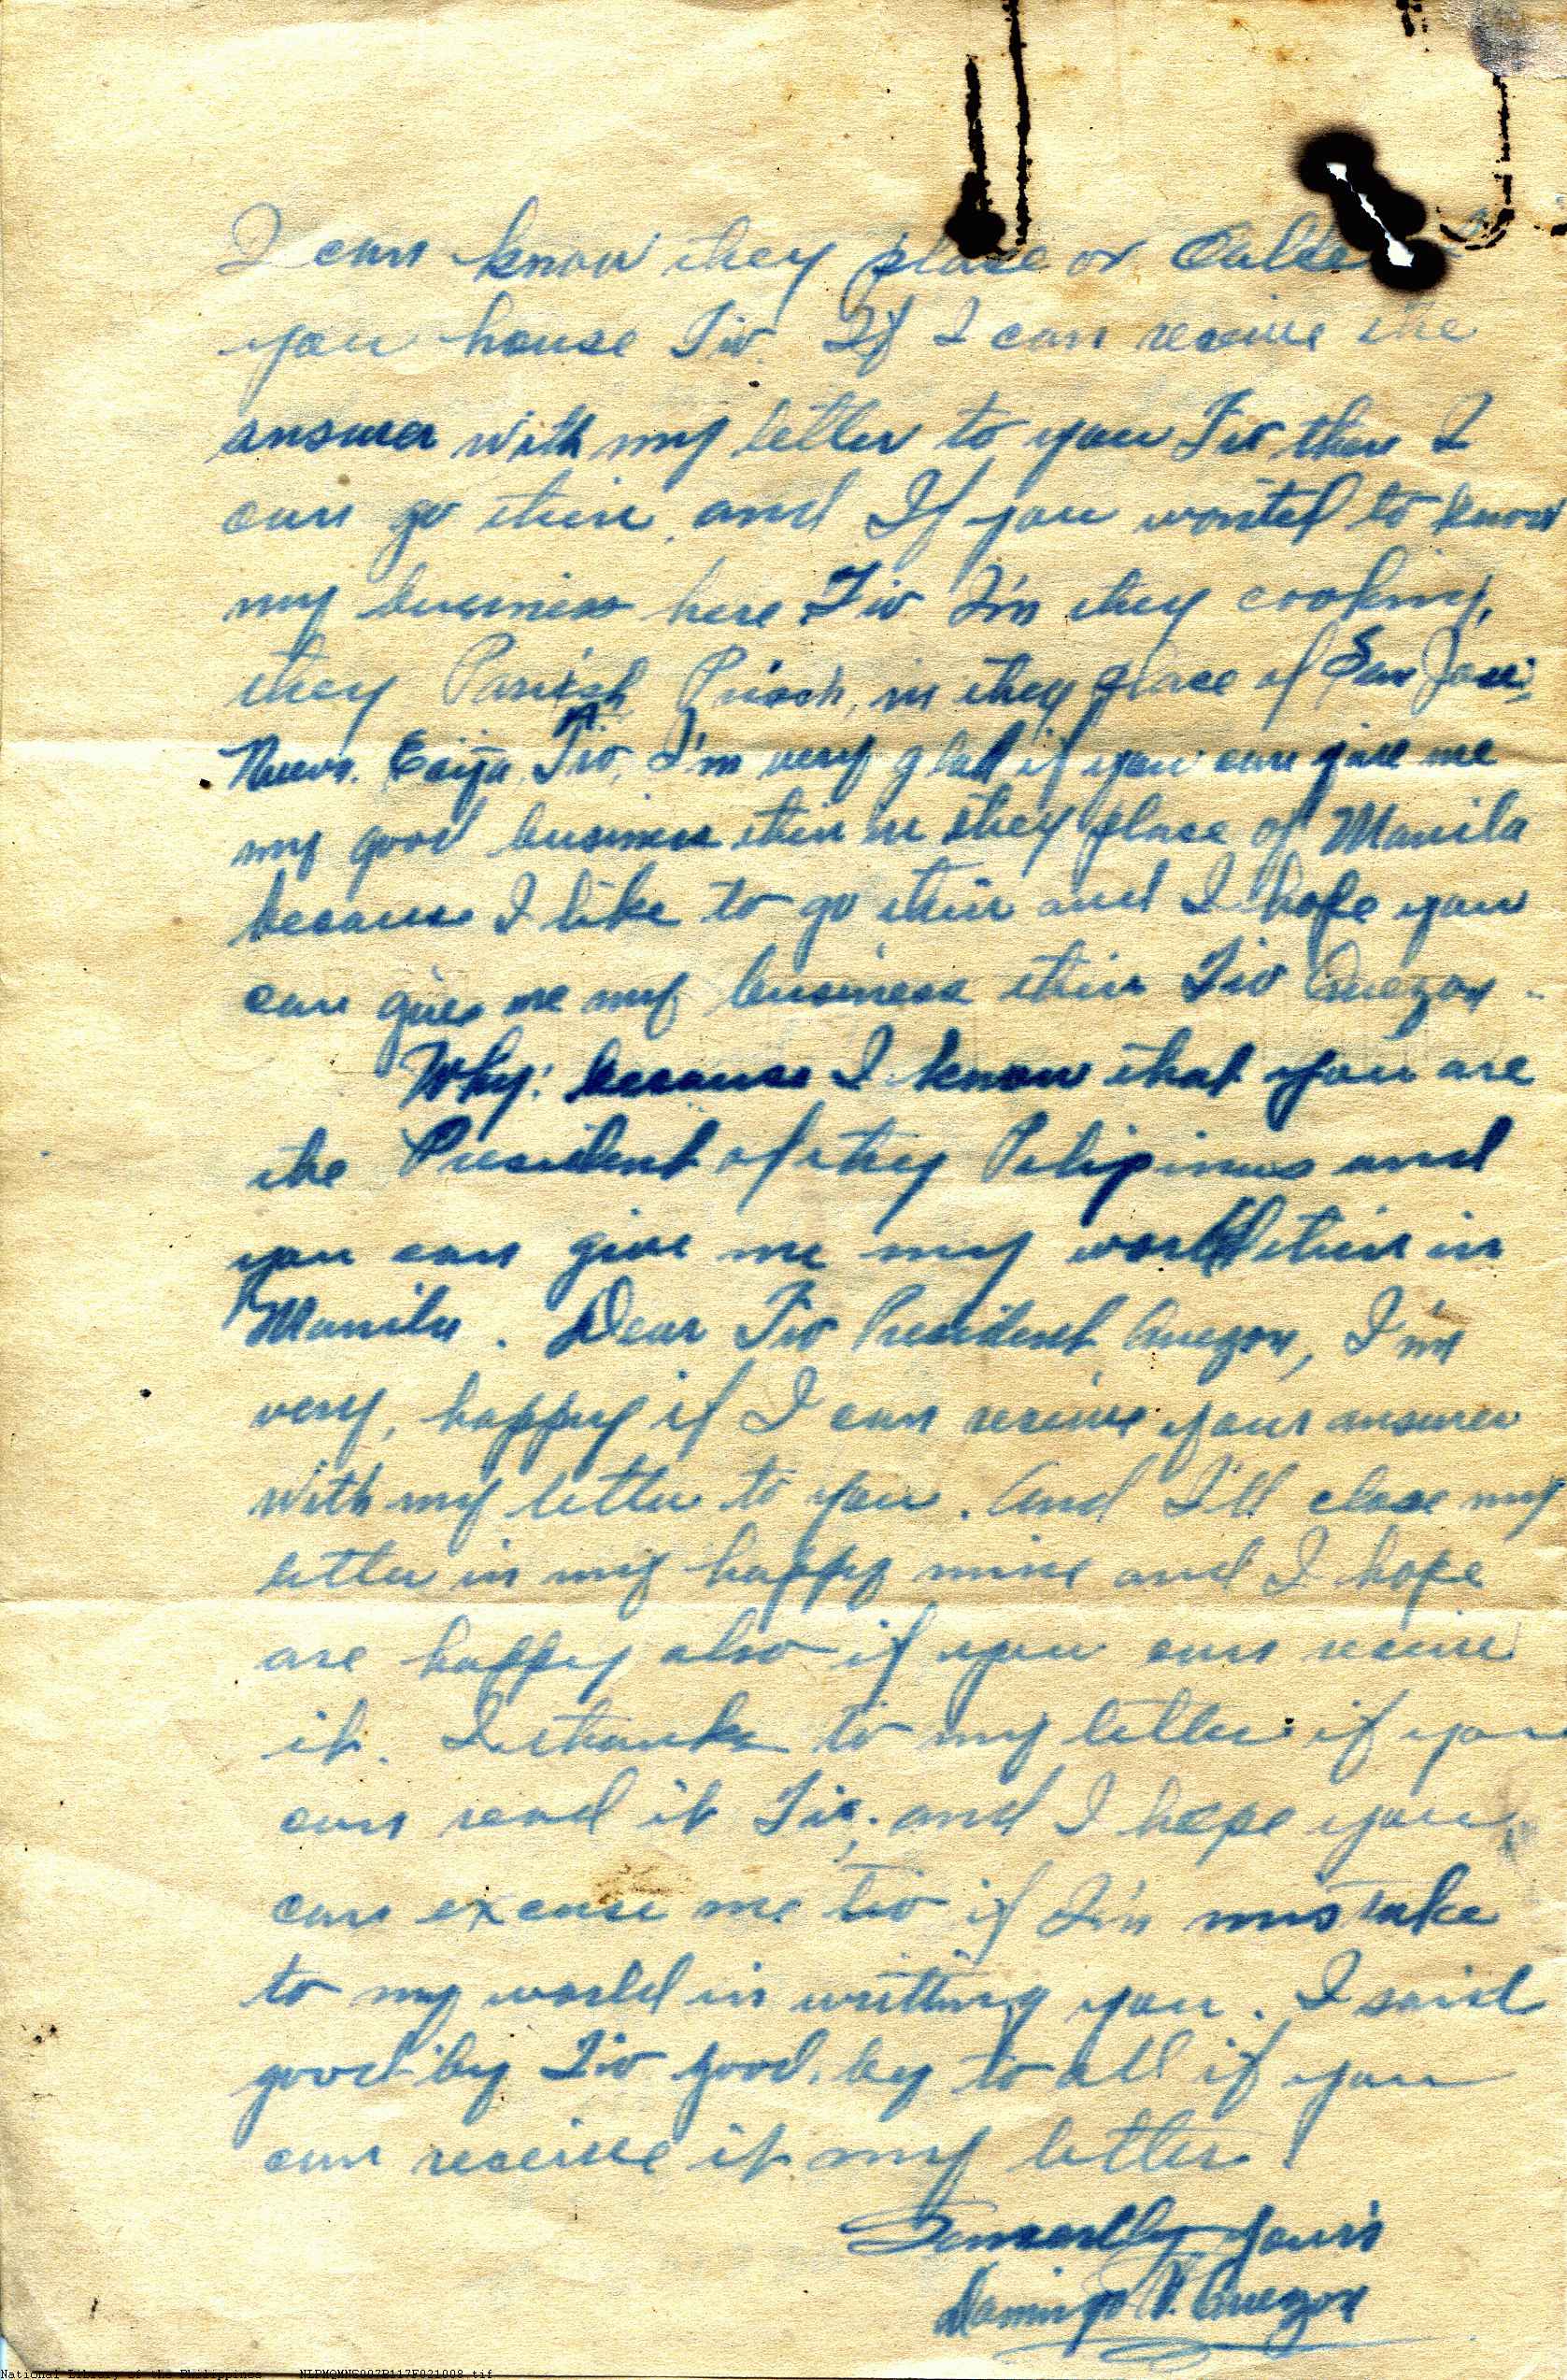 I can know they place or Calle
you house Tio. If I can receive the
answer with my letter to you Tio then I
can go their, and If you wonted to know
my business here Tio I'm they cooking,
they Parish Priech, in they place of San Jose;
Nueva. Ecija, Tio, I'm very glad if you can give me
my good business their in they place of Manila
because I like to go their and I hope you
can give me my business their Tio Quezon
Why: because I know that you are
the President of they Pilipinas and
you can give me my world their in
Manila. Dear Tio President Quezon, I'm
very, happy if I can receive your answer
with my letter to you. And I'll close my
letter in my happy mind and I hope
are happy also if you can receive
it. I thanks to my letter if you
can read it Tio; and I hope you
can excuse me tio if I'm mistake
to my world in writting you. I said
good-by Tio good.by to all if you
can receive it my letter.
Senserlly your's
Domingo V. Quezon
National Library of the Philippines NLPMQMNS007B117F021008.tif